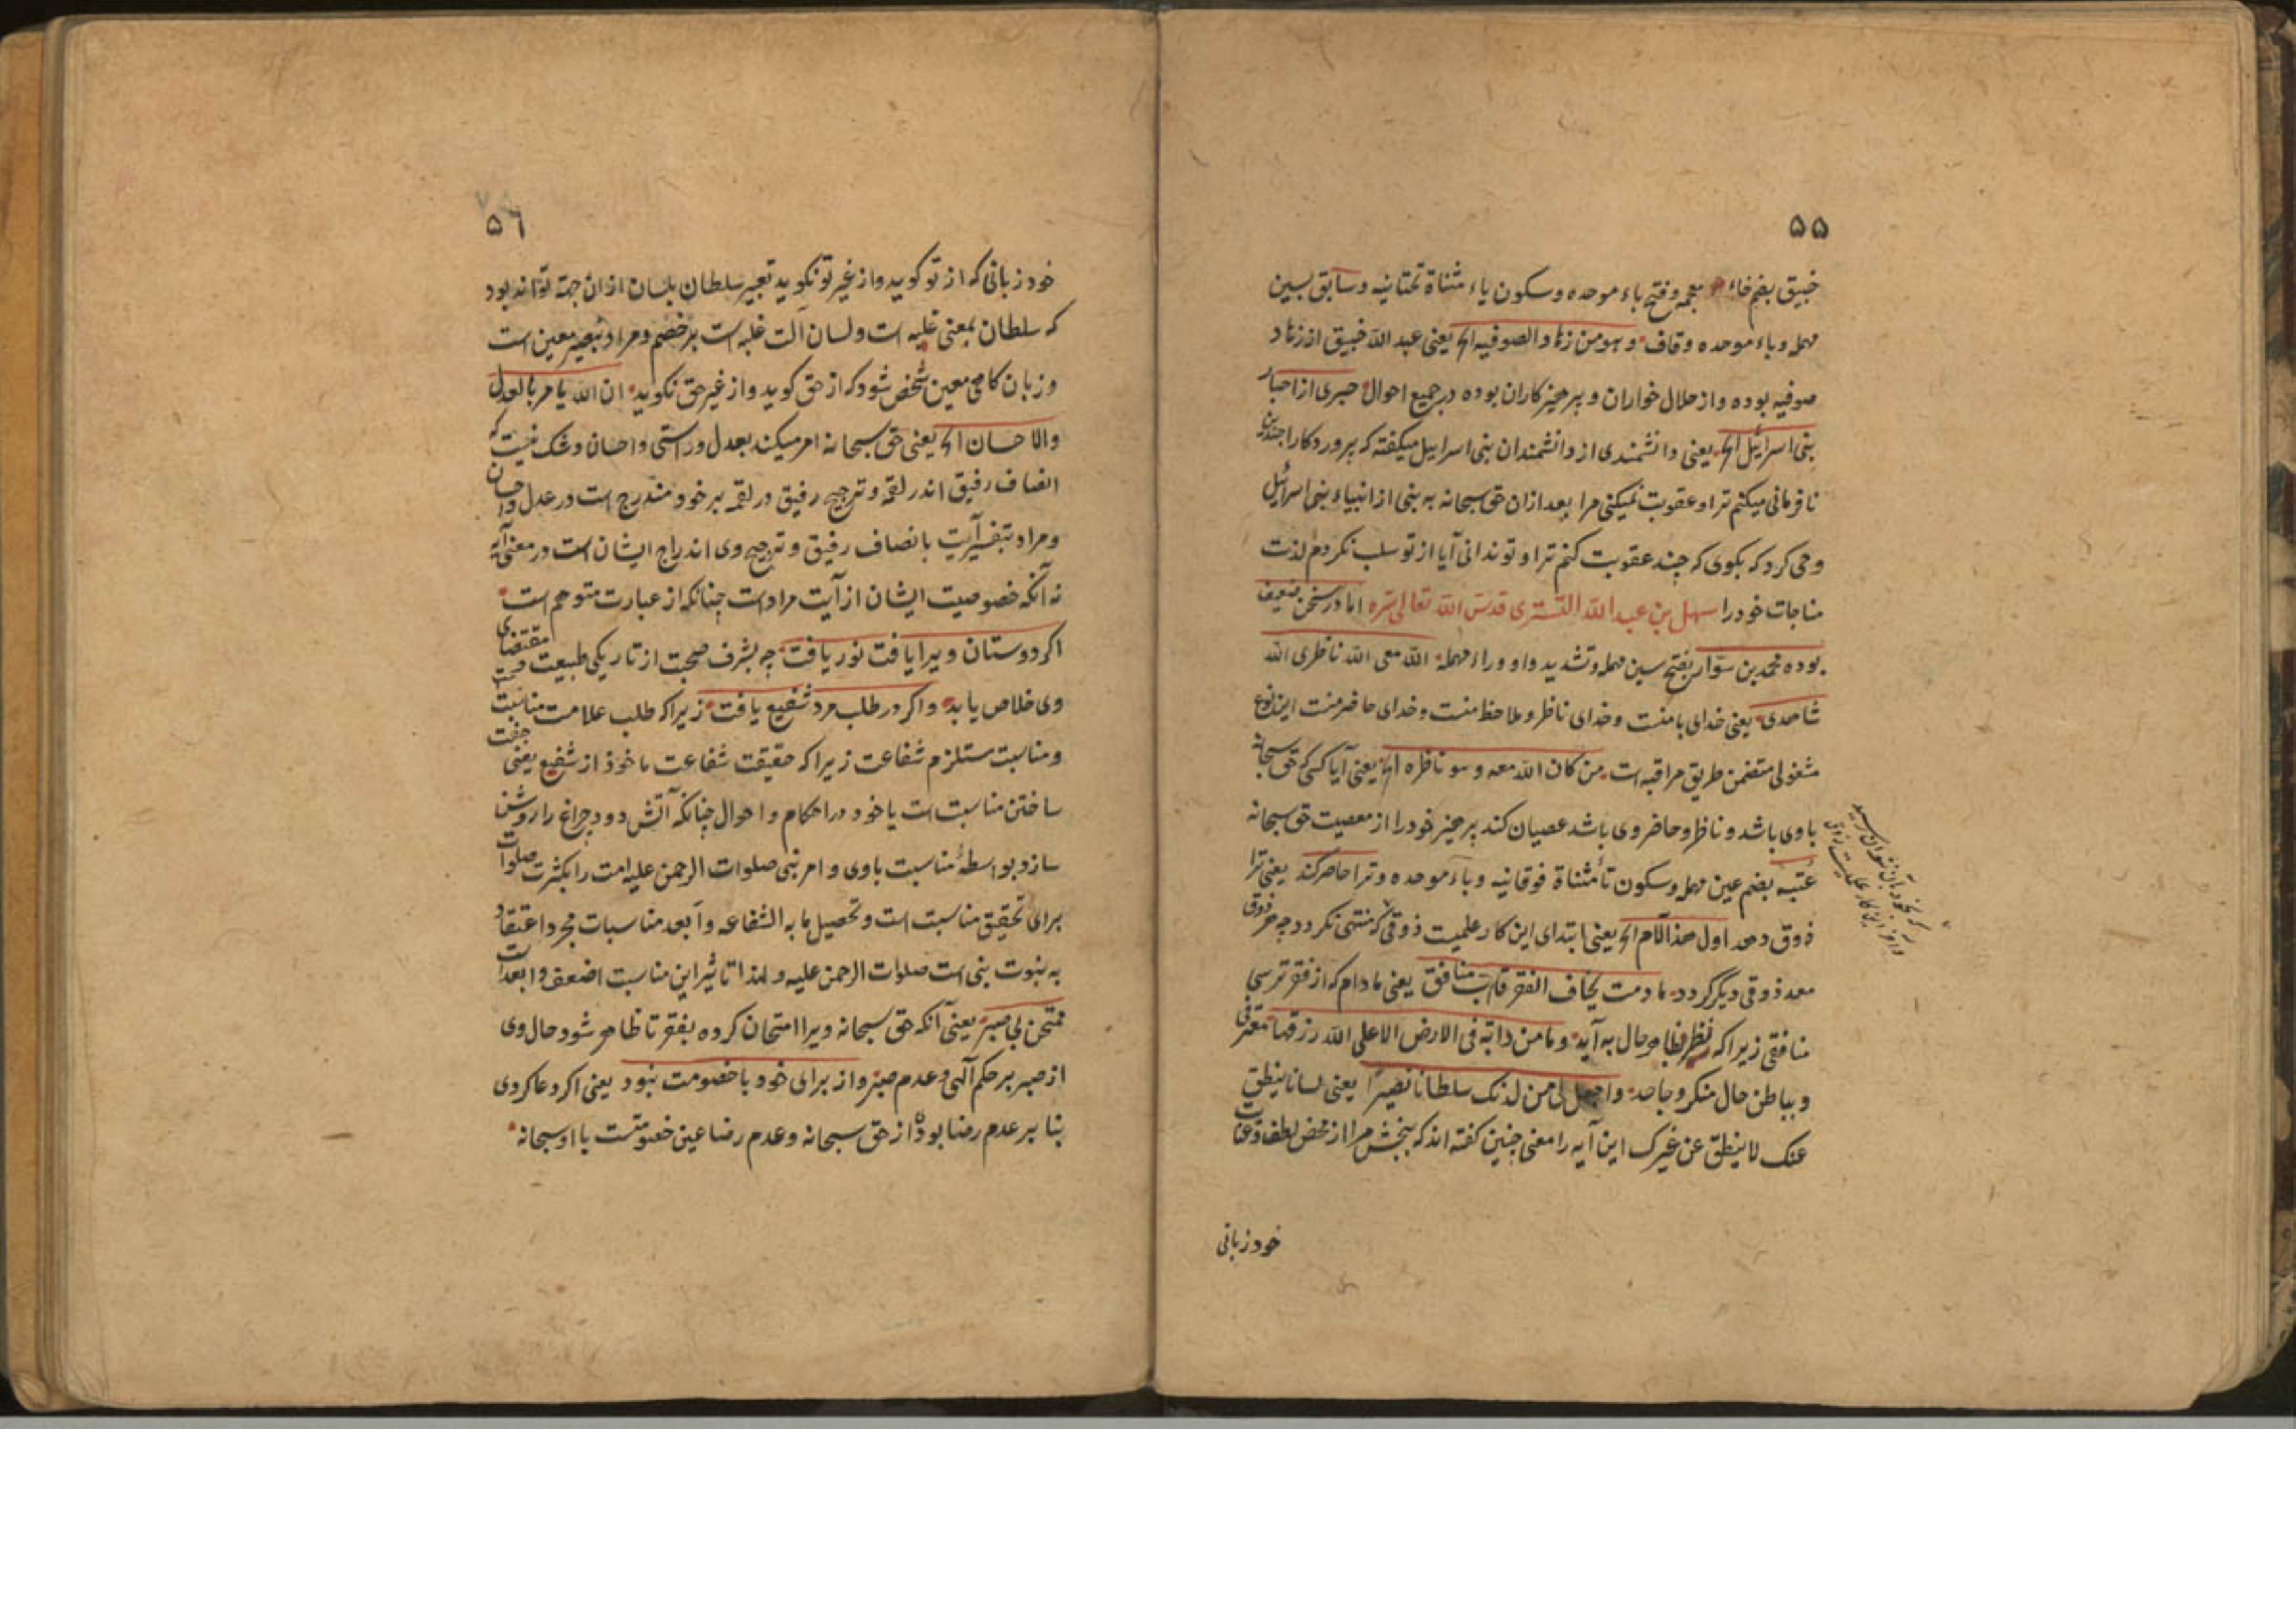 ۵۵
خبیق بضم خاء معجمه و فتح باء موحده و سکون یاء مثناة تحتانیه و سابق بسین
مهمله و باء موحده وقاف وهو من زهاد الصوفیه الخ یعنی عبد الله خبیق از زهاد
صوفیه بوده و از حلال خواران و پرهیزکاران بوده در جمیع احوال حبری از احبار
بنی اسرائیل الخ یعنی دانشمندی از دانشمندان بنی اسراییل میکفته که پروردکارا چندین
نافرمانی میکنم ترا و عقوبت نمیکنی مرا بعد ازان حق سبحانه به نبی از انبیاء بنی اسرائیل
وحی کرد که بکوی که چند عقوبت کنم ترا و تو ندانی آیا از تو سلب نکردم لذت
مناجات خود را سهل بن عبد الله التستری قدس الله تعالی سره اما در سخن ضعیف
بوده محمد بن سوّار بفتح سین مهمله و تشدید واو و راء مهمله الله معی الله ناظری الله
شاهدی یعنی خدای با منست و خدای ناظر و ملاحظ منست و خدای حاضر منست این نوع
مشغولی متضمن طریق مراقبه است من کان الله معه وهو ناظره الخ یعنی آیا کسی که حق سبحانه
با وی باشد و ناظر و حاضر وی باشد عصیان کند پرهیز خود را از معصیت حق سبحانه
عتبه بضم عین مهمله و سکون تاء مثناة فوقانیه و باء موحده و ترا حاضر کند یعنی ترا
ذوق دهد اول هذا الامر الخ یعنی ابتدای این کار علمیت ذوقی که منتهی نکردد چه هر ذوقی
معد ذوقی دیکر کردد ما دمت تخاف الفقر فانت منافق یعنی مادام که از فقر ترسی
منافقی زیرا که بظاهر حال به آیه وما من دابة فی الارض الا علی الله رزقها معترفی
و بباطن حال منکر و جاحد واجعل لی من لدنک سلطانا نصیرا یعنی لسانا ینطق
عنک لا ینطق عن غیرک این آیه را معنی چنین کفته اند که ببخش مرا از محض لطف و عنایت
خود زبانی
۵۶
خود زبانی که از تو کوید و از غیر تو نکوید تعبیر سلطان بلسان ازان جهة تواند بود
که سلطان بمعنی غلبه است و لسان آلت غلبه است بر خصم و مراد بنصیر معین است
و زبان کاهی معین شخص شود که از حق کوید و از غیر حق نکوید ان الله یامر بالعدل
والاحسان الخ یعنی حق سبحانه امر میکند بعدل و راستی و احسان و شک نیست که
انصاف رفیق اندر لقمه و ترجیح رفیق در لقمه بر خود مندرج است در عدل و احسان
و مراد بتفسیر آیت بانصاف رفیق و ترجیح وی اندراج ایشان است در معنی آیه
نه آنکه خصوصیت ایشان از آیت مراد است چنانکه از عبارت متوهم است
اکر دوستان ویرا یافت نور یافت چه بشرف صحبت از تاریکی طبیعت و مقتضای
وی خلاص یابد و اکر در طلب مرد شفیع یافت زیرا که طلب علامت مناسبت
و مناسبت مستلزم شفاعت زیرا که حقیقت شفاعت ماخوذ از شفیع یعنی جفت
ساختن مناسبت است با خود در احکام و احوال چنانکه آتش دود چراغ را روشن
سازد بواسطهٔ مناسبت با وی و امر نبی صلوات الرحمن علیه امت را بکثرت صلوات
برای تحقیق مناسبت است و تحصیل ما به الشفاعه و ابعد مناسبات مجرد اعتقاد
به نبوت نبی است صلوات الرحمن علیه و لهذا تاثیر این مناسبت اضعف و ابعد است
ممتحن بی صبر یعنی آنکه حق سبحانه ویرا امتحان کرده بفقر تا ظاهر شود حال وی
از صبر بر حکم آلهی و عدم صبر و از برای خود با خصومت نبود یعنی اکر دعا کردی
بنا بر عدم رضا بودی از حق سبحانه و عدم رضا عین خصومتست با او سبحانه